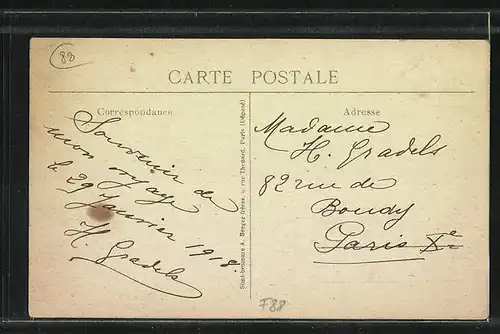 88
CARTE POSTALE
Correspondance
Souvenir de
mon voyage
le 29 Janvier 1918.
H. Gradels
Adresse
Madame
H. Gradels
82 rue de
Bondy
Paris Xe
A. Berger frères, 9, rue Thénard, Paris (Déposé)
F88